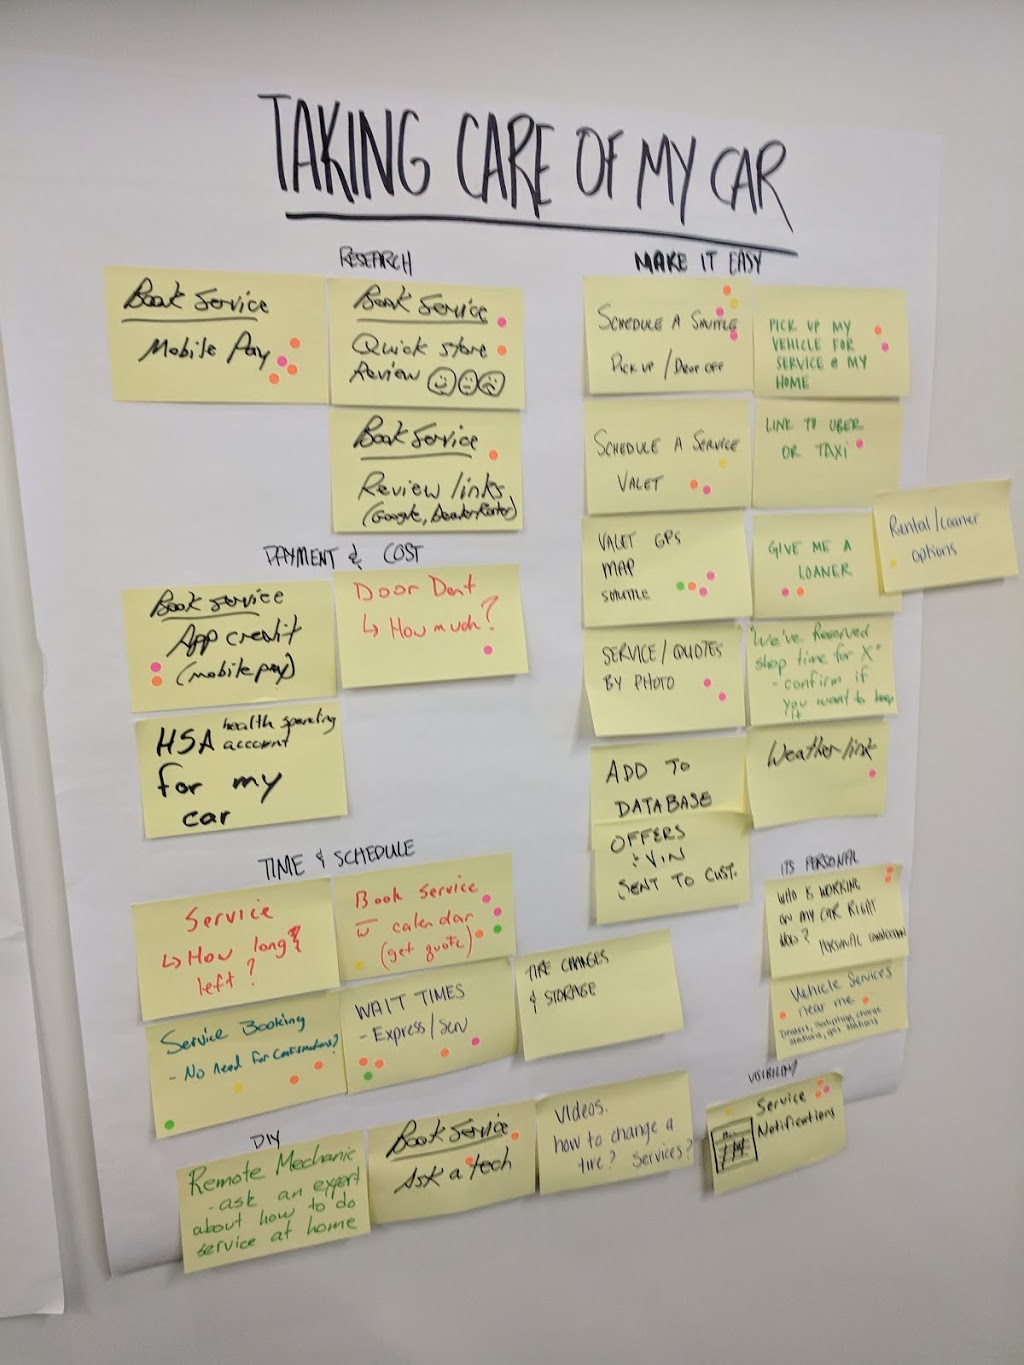 TAKING CARE OF MY CAR
RESEARCH
Book Service
Mobile Pay
Book Service
Quick store
Review
Book Service
Review links
(Google, DealerRater)
PAYMENT & COST
Book Service
App credit
(mobile pay)
Door Dent
↳ How much?
HSA health spending
account
for my
car
TIME & SCHEDULE
Service
↳ How long
left?
Book Service
w calendar
(get quote)
Service Booking
- No Need for Confirmations?
WAIT TIMES
- Express/Serv
TIRE CHANGES
& STORAGE
DIY
Remote Mechanic
- ask an expert
about how to do
service at home
Book Service
Ask a tech
Videos.
how to change a
tire? Services?
MAKE IT EASY
SCHEDULE A SHUTTLE
PICK UP / DROP OFF
PICK UP MY
VEHICLE FOR
SERVICE @ MY
HOME
SCHEDULE A SERVICE
VALET
LINK TO UBER
OR TAXI
VALET GPS
MAP
SHUTTLE
GIVE ME A
LOANER
Rental/Loaner
options
SERVICE/QUOTES
BY PHOTO
"We've Reserved
shop time for X"
- confirm if
you want to keep
it
ADD TO
DATABASE
OFFERS
VIN
SENT TO CUST.
Weather link
ITS PERSONAL
WHO IS WORKING
ON MY CAR RIGHT
NOW? PERSONAL CONNECTION
Vehicle Services
near me
stations, gas stations
VISIBILITY
Service
Notifications